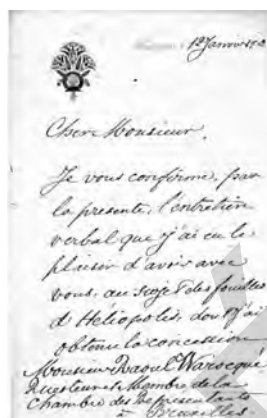 12 Janvier
Cher Monsieur,
Je vous confirme, par
la présente, l'entretien
verbal que j'ai eu le
plaisir d'avoir avec
vous, au sujet des fouilles
d'Héliopolis, dont j'ai
obtenu la concession
Monsieur Raoul Warocqué
Questeur et Membre de la
Chambre des Représentants
à Bruxelles